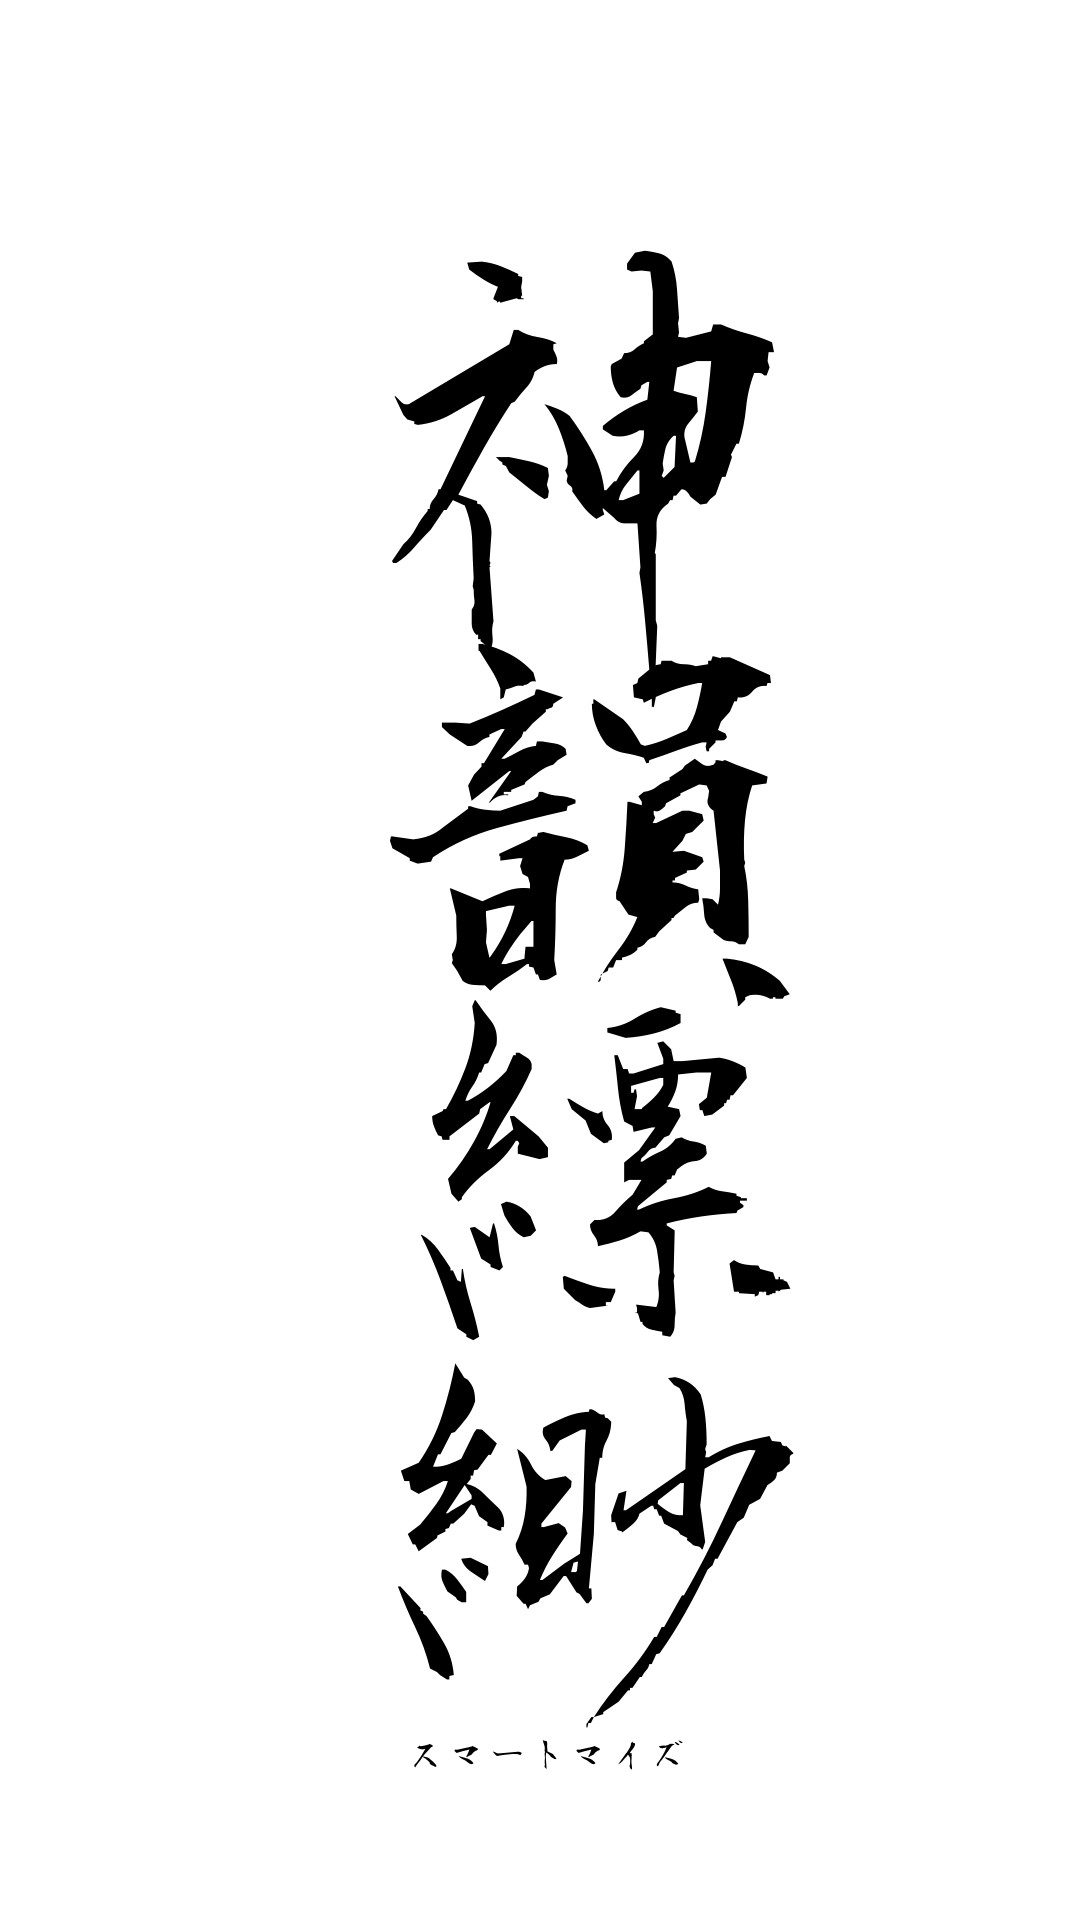 神韻縹緲
スマートマイズ